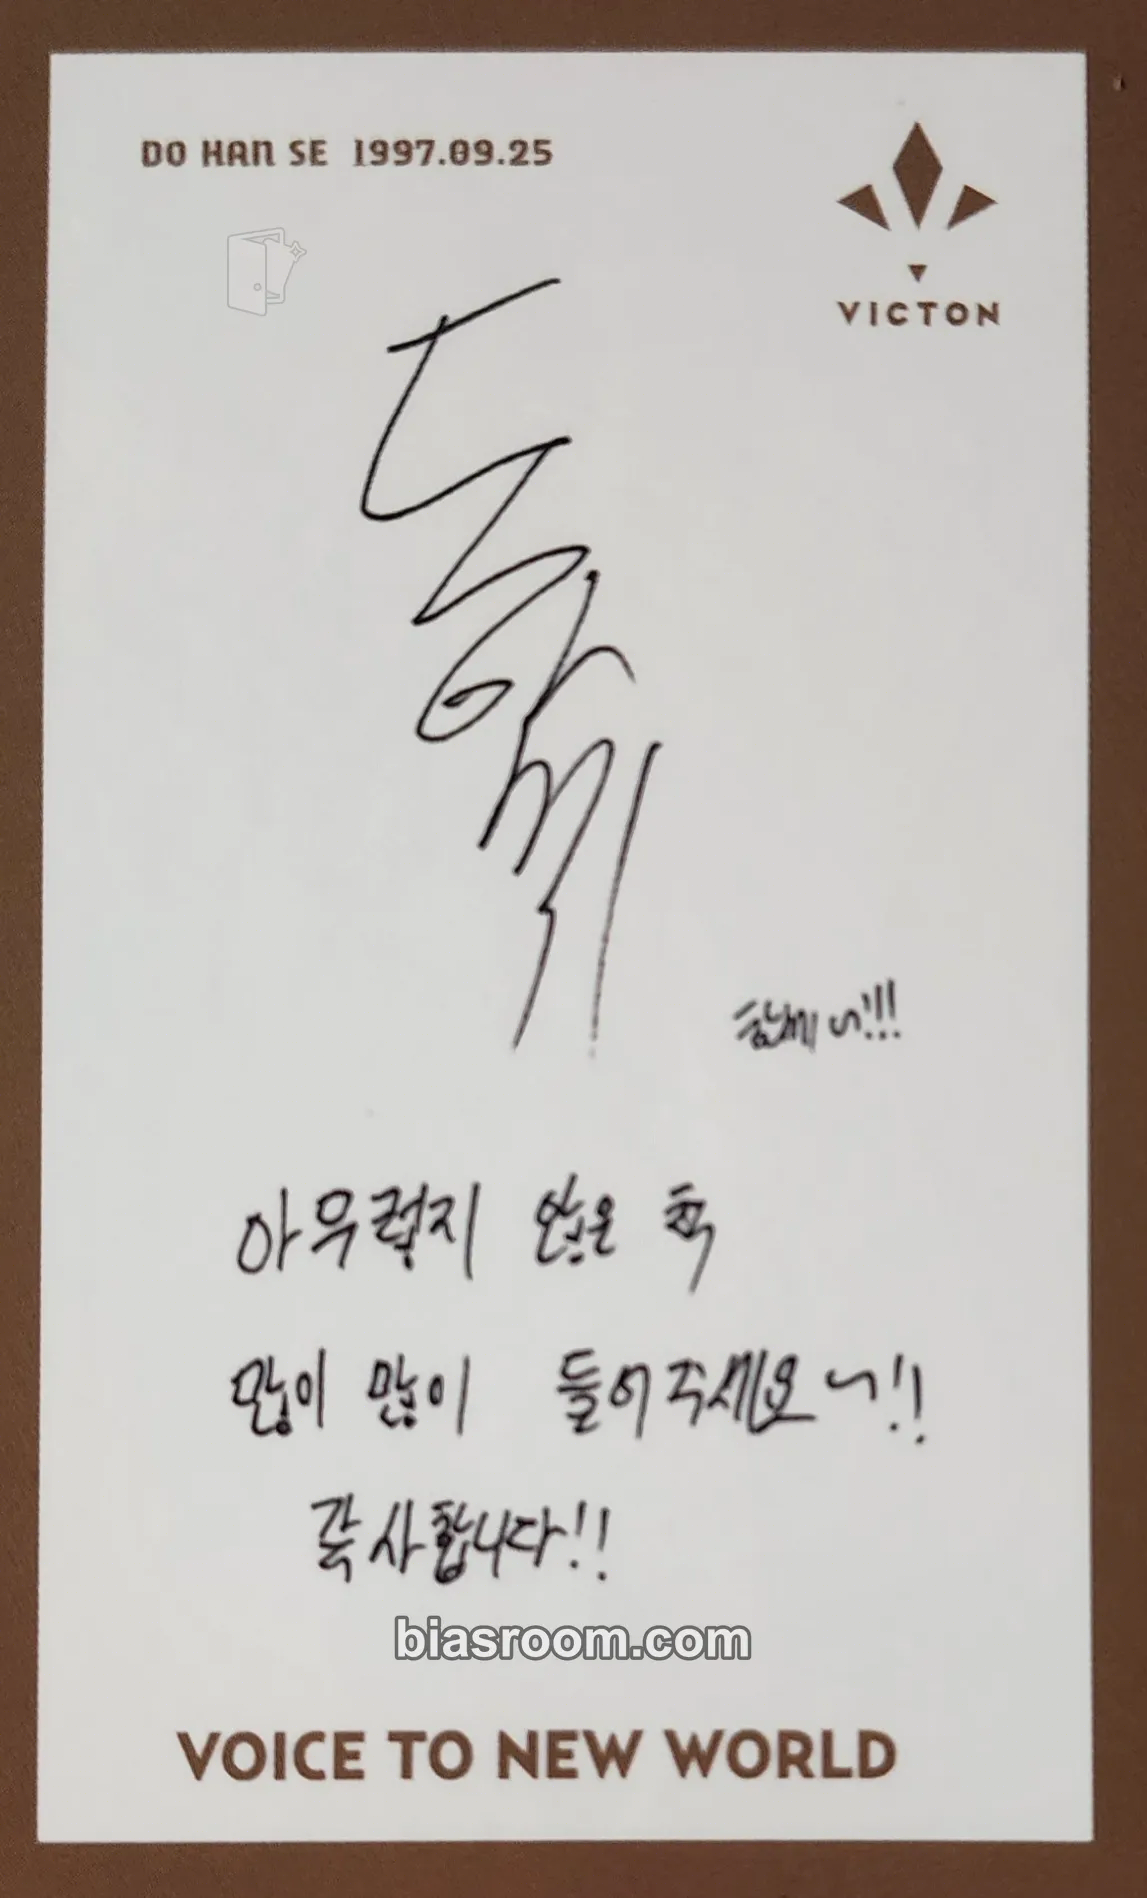 DO HAN SE 1997.09.25
VICTON
함께 ~!!!
아무렇지 않은 척
많이 많이 들어주세요~!!
감사합니다!!
biasroom.com
VOICE TO NEW WORLD